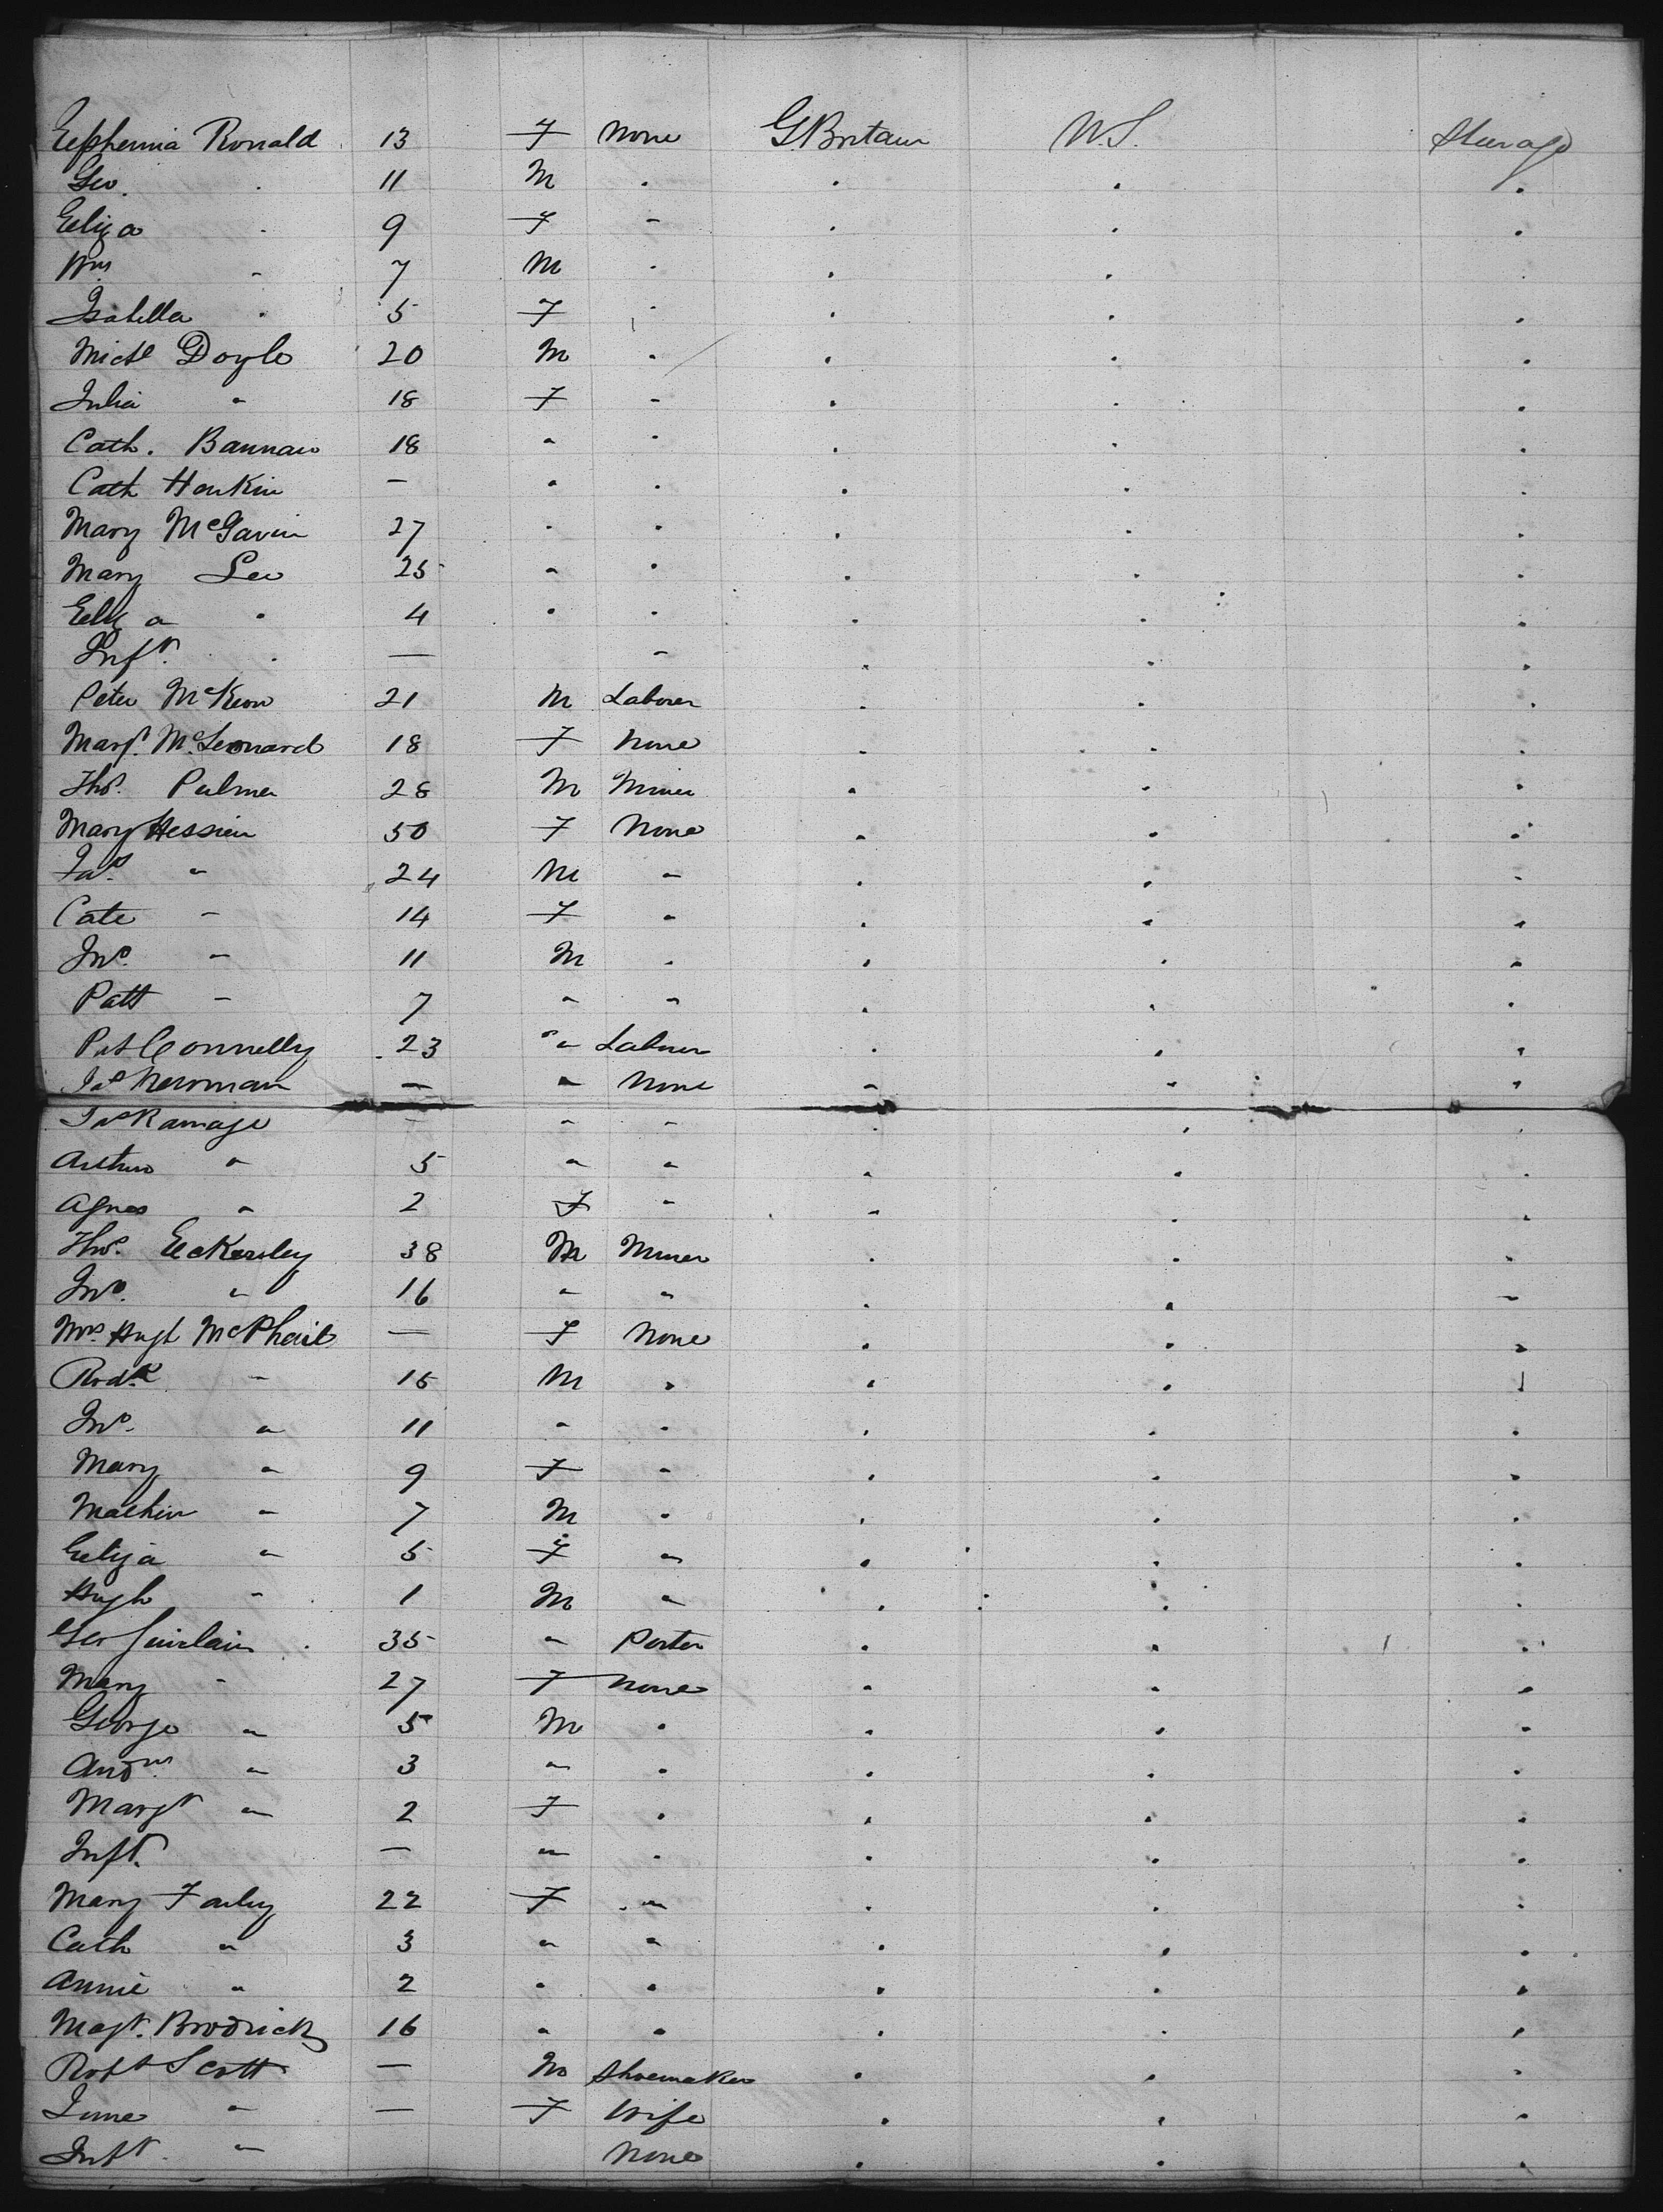 Euphemia Ronald 13 F None G Britain U.S. Steerage
Geo. " 11 M " " " "
Eliza " 9 F " " " "
Wm " 7 M " " " "
Isabella " 5 F " " " "
Michl Doyle 20 M " " " "
Julia " 18 F " " " "
Cath. Bannan 18 " " " " "
Cath Honkin — " " " " "
Mary McGavin 27 " " " " "
Mary Leo 25 " " " " "
Eliza " 4 " " " " "
Inft. " — " " " "
Peter McKeon 21 M Laborer " " "
Margt. McLeonard 18 F None " " "
Thos. Palmer 28 M Miner " " "
Mary Hession 50 F None " " "
Jas. " 24 M " " " "
Cate " 14 F " " " "
Jno. " 11 M " " " "
Patt " 7 " " " " "
Pat Connelly 23 " Laborer " " "
Jas Newman — " None " " "
Jas Ramage — " " " " "
Arthur " 5 " " " " "
Agnes " 2 F " " " "
Thos. Eckersley 38 M Miner " " "
Jno. " 16 " " " " "
Mrs. Hugh McPhail — F None " " "
Rodk " 15 M " " " "
Jno. " 11 " " " " "
Mary " 9 F " " " "
" 7 M " " " "
Eliza " 5 F " " " "
Hugh " 1 M " " " "
Geo 35 " Porter " " "
Mary " 27 F None " " "
George " 5 M " " " "
Andw. " 3 " " " " "
Margt " 2 F " " " "
Inft. — " " " " "
Mary Farley 22 F " " " "
Cath " 3 " " " " "
Annie " 2 " " " " "
Magt. Brodrick 16 " " " " "
Robt Scott — M Shoemaker " " "
Jane " — F Wife " " "
Inft. " None " " "